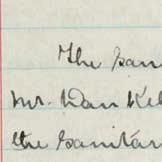 The San
Mr. Dan Kel
the Sanitar